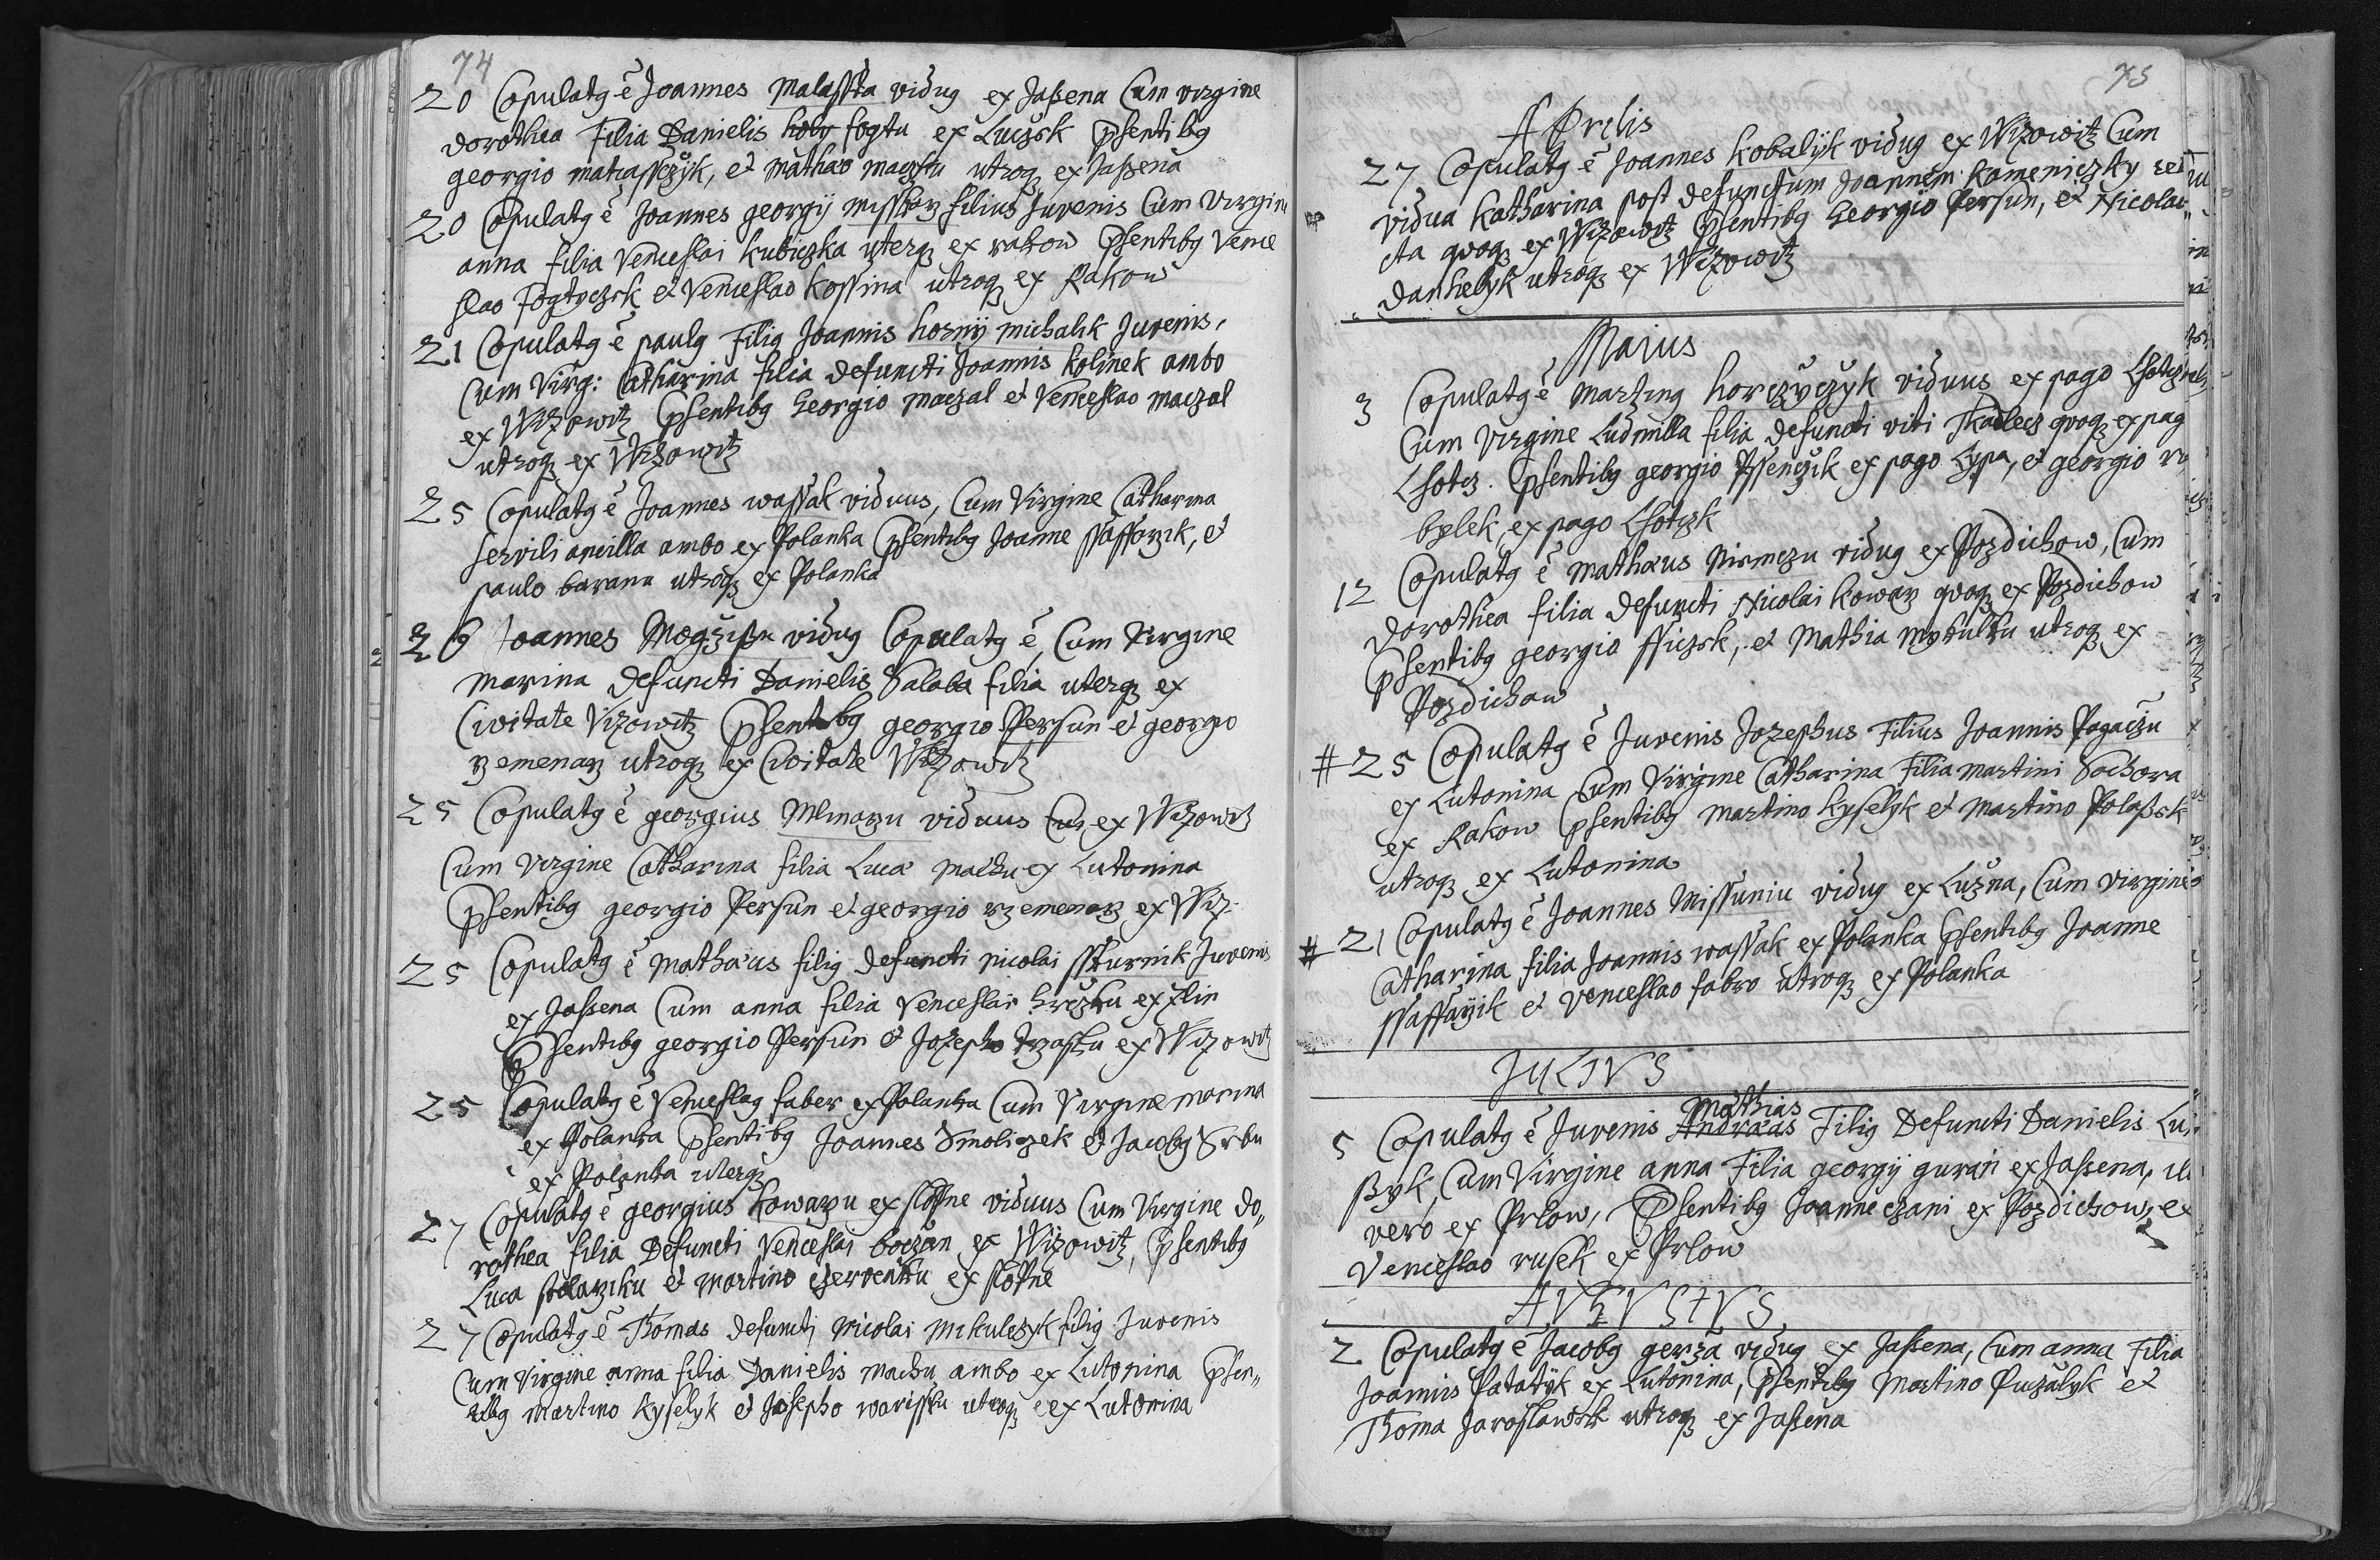 74
20 Copulatg ē Joannes Malasska vidug ex Jaßena Cum virgine
dorothea Filia Danielis holy fogtu ex Luczsk Psentibg
georgio matiassczyk, et mathæo maczku utroq ex Jaßena
20 Copulatg ē Joannes georgij misskarz filius Juvenis Cum Virgine
anna filia Venceslai Kubiczka uterq ex rakow Psentibg Vence
slao Fogtyczsk et Venceslao Kossina utroq ex Rakow
21 Copulatg ē paulg Filig Joannis hornÿ michalik Juvenis,
Cum Virg: Catharina filia defuncti Joannis kolinek ambo
ex Wizowitz Psentibg Georgio maczal et Venceslao maczal
utroq ex Wizowitz
25 Copulatg ē Joannes wassak viduus, Cum Virgine Catharina
servili ancilla ambo ex Polanka Psentibg Joanne ssaffarzik, et
paulo barana utroq ex Polanka
26 Joannes Mogzißu vidug Copulatg ē, Cum Virgine
Marina defuncti Danielis Salaba filia uterq ex
Civitate Vizowitz Psentibg georgio Persun et georgio
rzemenarz utroq ex Civitate Wizowitz
25 Copulatg ē georgius Mlinarzu viduus Cu, ex Wizowitz
Cum Virgine Catharina filia Lucæ machu ex Lutonina
Psentibg georgio Persun et georgio rzemenarz ex Wiz-
25 Copulatg ē Mathæus filig defuncti nicolai sskurnik Juvenis
ex Jaßena Cum anna filia Venceslai hrczku ex Zlin
Psentibg georgio Persun et Jozepho trzasku ex Wizowitz
25 Copulatg ē Venceslag faber ex Polanka Cum Virgine marina
ex Polanka Psentibg Joannes Smoliczek et Jacobg Srbu
ex Polanka uterq
27 Copulatg ē georgius Kowarzu ex slopne viduus Cum Virgine do„
rothea filia Defuncti Venceslai boczan ex Wizowitz, Psentibg
Luca stolarziku et Martino czervenku ex slopne
27 Copulatg ē Thomas defuncti Nicolai Mikulczyk filig Juvenis
Cum Virgine anna filia Danielis machu ambo ex Lutonina Psen„
tibg Martino Kyselyk et Josepho warissku utroq ex Lutonina
75
APrilis
27 Copulatg ē Joannes Kobalÿk vidug ex Wizowitz Cum
vidua Katharina post defunctum Joannem Kameniczky reli
cta qvoq ex Wizowitz Psentibg Georgio Persun, et Nicolao„
Danhelyk utroq ex Wizowitz
Maius
3 Copulatg ē Marting horczyczyk viduus ex pago Lhotcz
Cum Virgine Ludmilla filia defuncti viti Tkadlecz qvoq ex pag
Lhotcz. Psentibg georgio Pssenczik ex pago Lypa, et georgio ro
bylek ex pago Lhotczk
12 Copulatg ē Mathæus Nirmczu vidug ex Pozdichow, Cum
dorothea filia defuncti Nicolai Kowarz qvoq ex Pozdichow
Psentibg georgio ssiczsk, et Mathia mykulku utroq ex
Pozdichow
# 25 Copulatg ē Juvenis Jozephus Filius Joannis Pagaczu
ex Lutonina Cum Virgine Catharina Filia martini Sochora
ex Rakow Psentibg Martino Kyselyk et Martino Polaßsk
utroq ex Lutonina
# 21 Copulatg ē Joannes Missuniu vidug ex Lužna, Cum Virgine
Catharina filia Joannis wassak ex Polanka Psentibg Joanne
ssaffarzik et Venceslao fabro utroq ex Polanka
JULIVS
Mathias
5 Copulatg ē Juvenis Andræas Filig Defuncti Danielis Lu
ßyk, Cum Virgine anna Filia georgÿ guran ex Jaßena, ille
vero ex Prlow, Psentibg Joanne czani ex Pozdichow, et
Venceslao rusek ex Prlow
AVGVSTVS
2 Copulatg ē Jacobg gerza vidug ex Jaßena, Cum anna Filia
Joannis Patatÿk ex Lutonina, Psentibg Martino Puczalyk et
Thoma Jaroslawsk utroq ex Jaßena